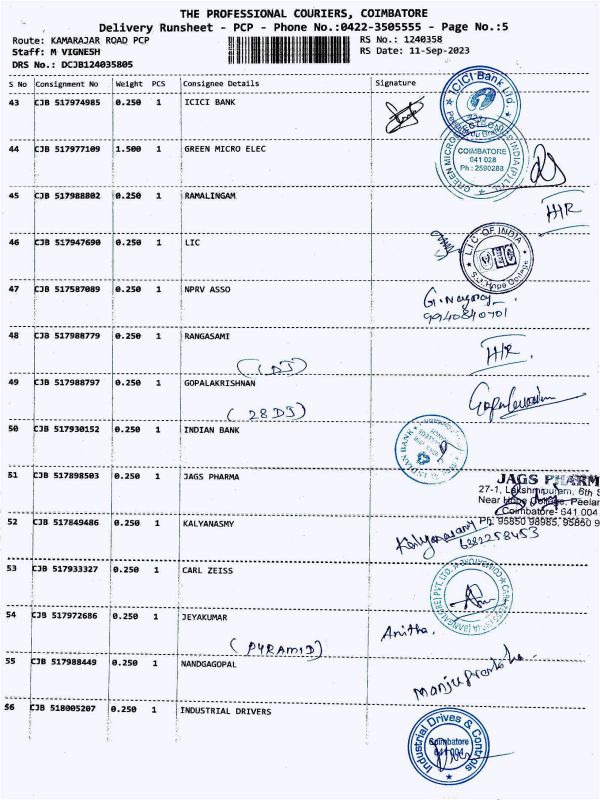 THE PROFESSIONAL COURIERS, COIMBATORE
Delivery Runsheet - PCP - Phone No.:0422-3505555 - Page No.:5
Route: KAMARAJAR ROAD PCP
Staff: M VIGNESH
DRS No.: DCJB124035805
RS No.: 1240358
RS Date: 11-Sep-2023
S No Consignment No Weight PCS Consignee Details Signature
43 CJB 517974985 0.250 1 ICICI BANK
ICICI Bank Ltd.
44 CJB 517977109 1.500 1 GREEN MICRO ELEC
COIMBATORE
641 028
Ph : 2590283
45 CJB 517988802 0.250 1 RAMALINGAM
H/R
46 CJB 517947690 0.250 1 LIC
L.I.C OF INDIA
47 CJB 517587089 0.250 1 NPRV ASSO
G. Nagaraj
9940840701
48 CJB 517988779 0.250 1 RANGASAMI
H/R.
49 CJB 517988797 0.250 1 GOPALAKRISHNAN
(28DJ)
50 CJB 517930152 0.250 1 INDIAN BANK
INDIAN BANK
51 CJB 517898503 0.250 1 JAGS PHARMA
JAGS PHARM
27-1, Lakshmipuram, 6th S
Near Hope College, Peelam
Coimbatore- 641 004
Ph: 95850 98985, 95850 9
52 CJB 517849486 0.250 1 KALYANASMY
Kalyanasamy
6382258453
53 CJB 517933327 0.250 1 CARL ZEISS
54 CJB 517972686 0.250 1 JEYAKUMAR
Anitha.
(PYRAMID)
55 CJB 517988449 0.250 1 NANDGAGOPAL
Manju Prantha
56 CJB 518005207 0.250 1 INDUSTRIAL DRIVERS
Industrial Drives & Controls
Coimbatore
641 004